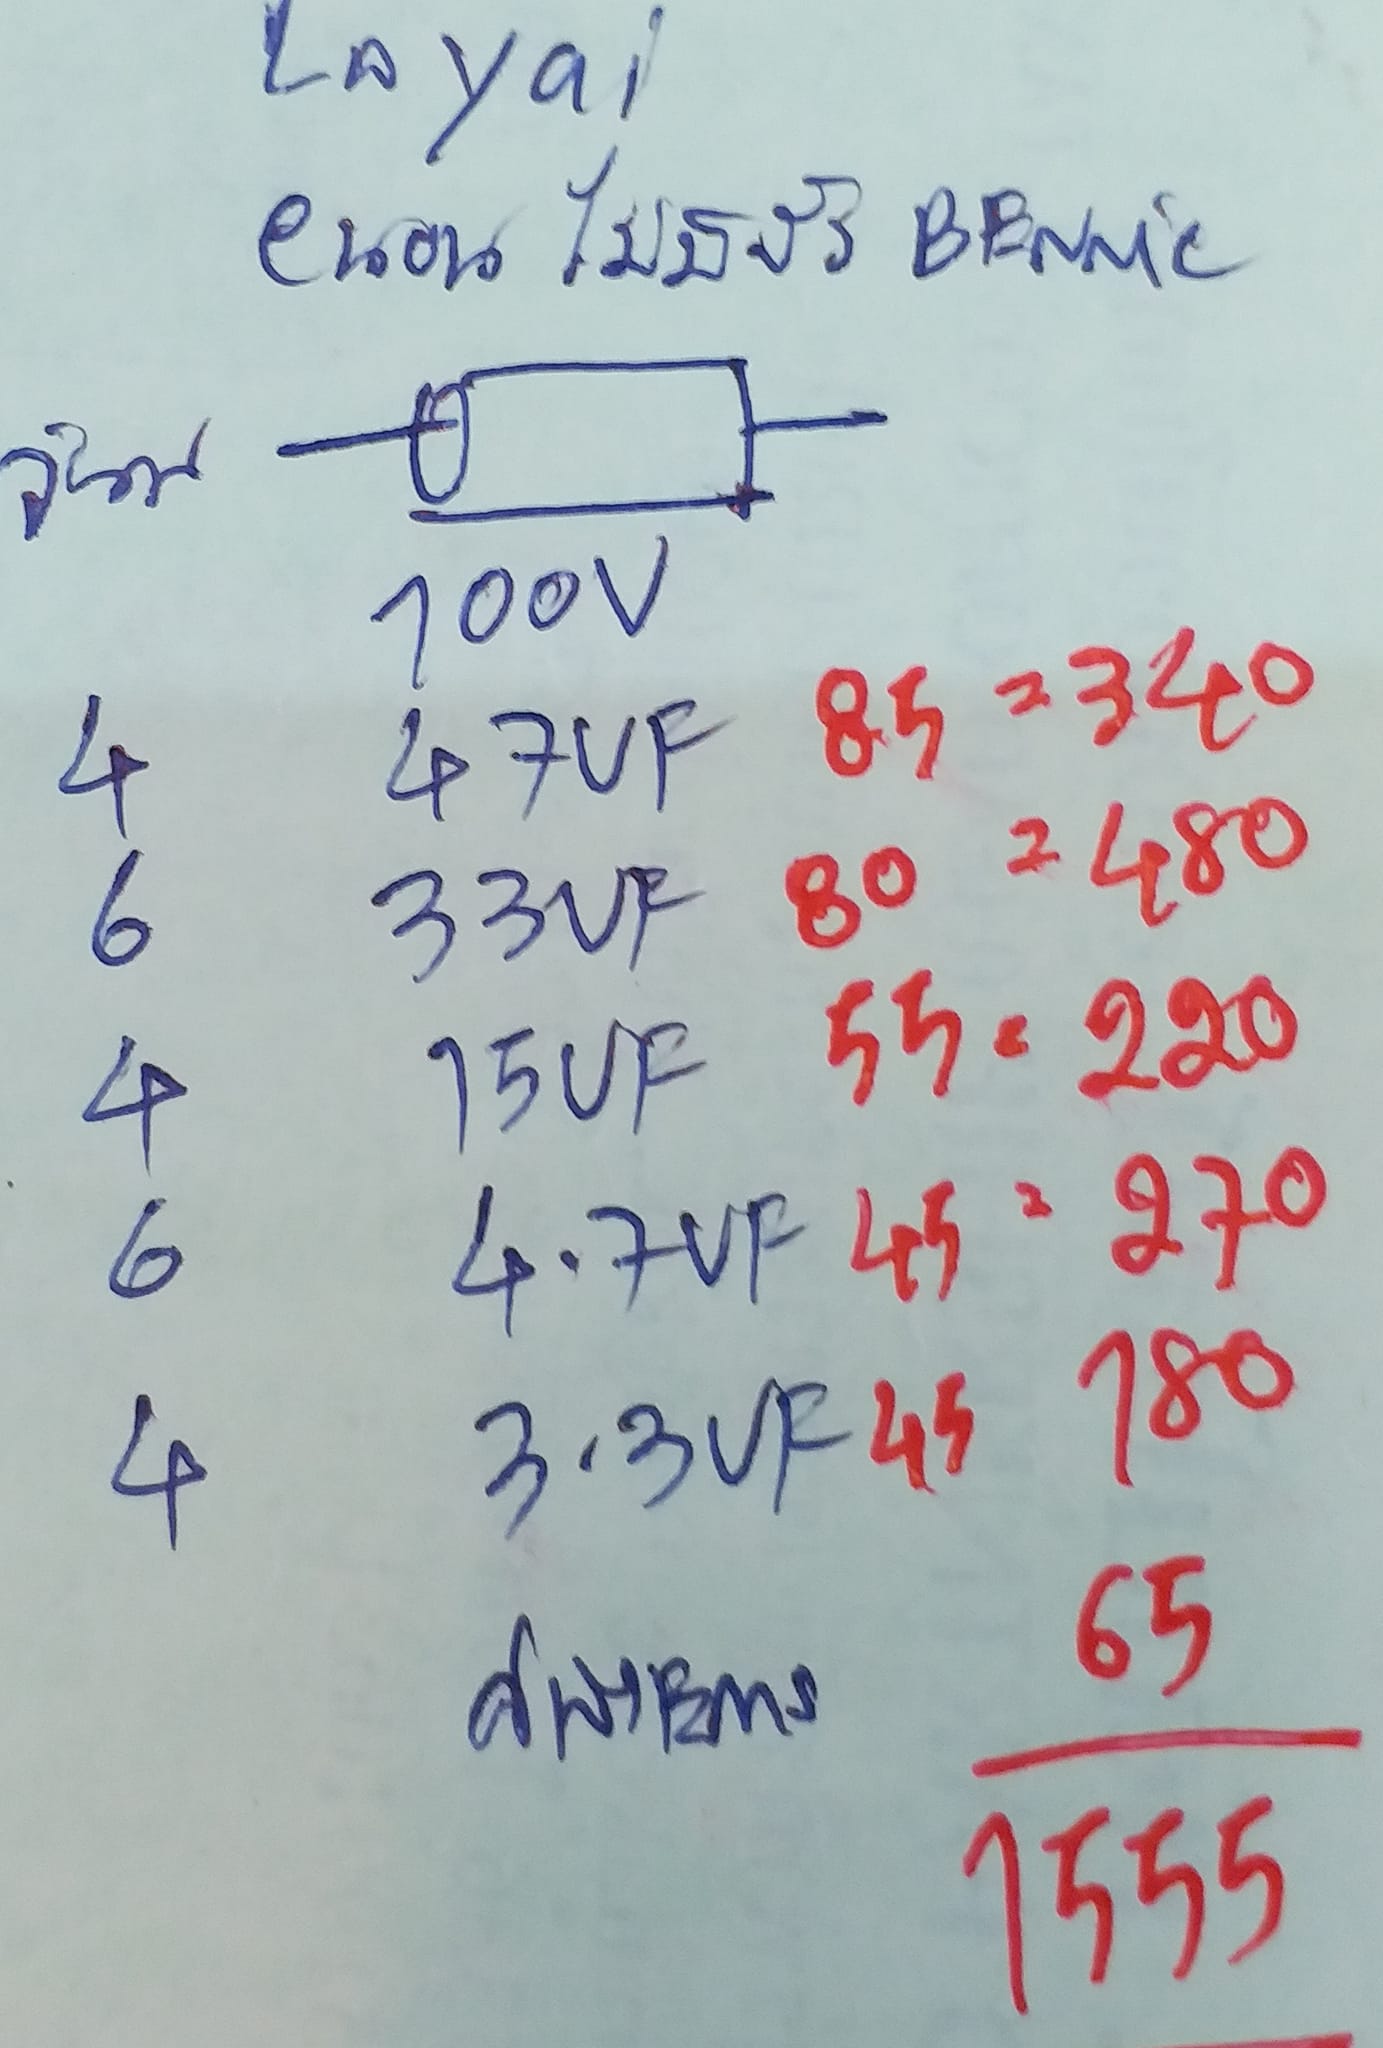 Layai
Cนอน ไม่มีขั้ว BENNIC
จำนวน
100V
4 47UF 85 = 340
6 33UF 80 = 480
4 15UF 55 = 220
6 4.7UF 45 = 270
4 3.3UF 45 180
ส่ง EMS 65
1555